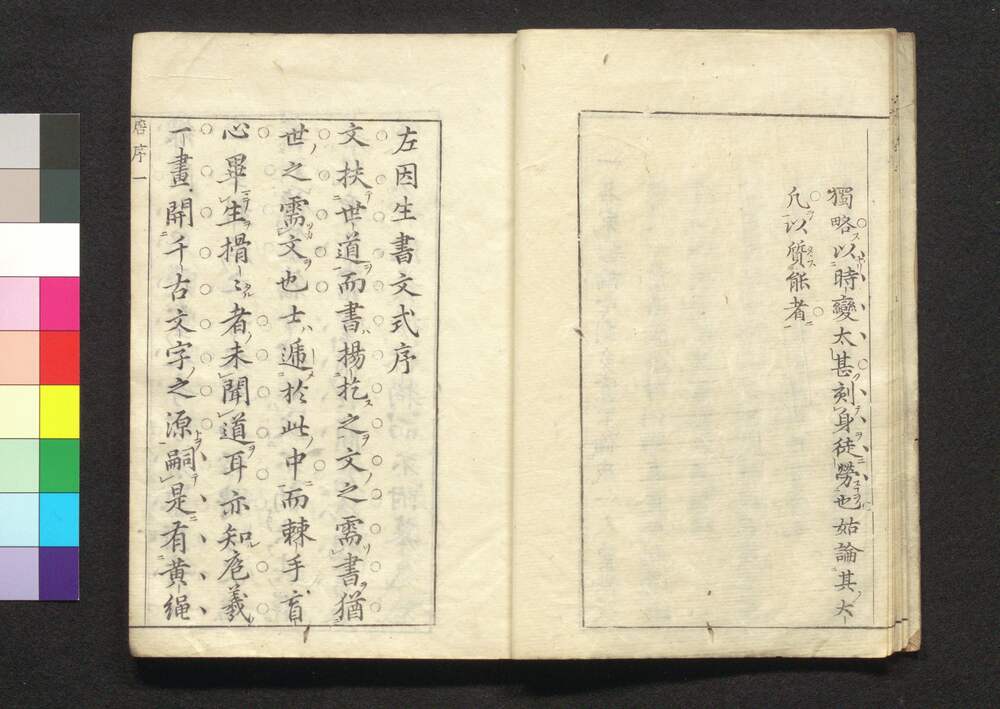 獨略以時變太甚刻身徒勞也姑論其大
凡以質能者
左因生書文式序
文扶世道而書揚扢之文之需書猶
世之需文也士遁於此中而棘手盲
心畢生搰〻者未聞道耳亦知庖羲
一畫開千古文字之源嗣是有黄繩
序一